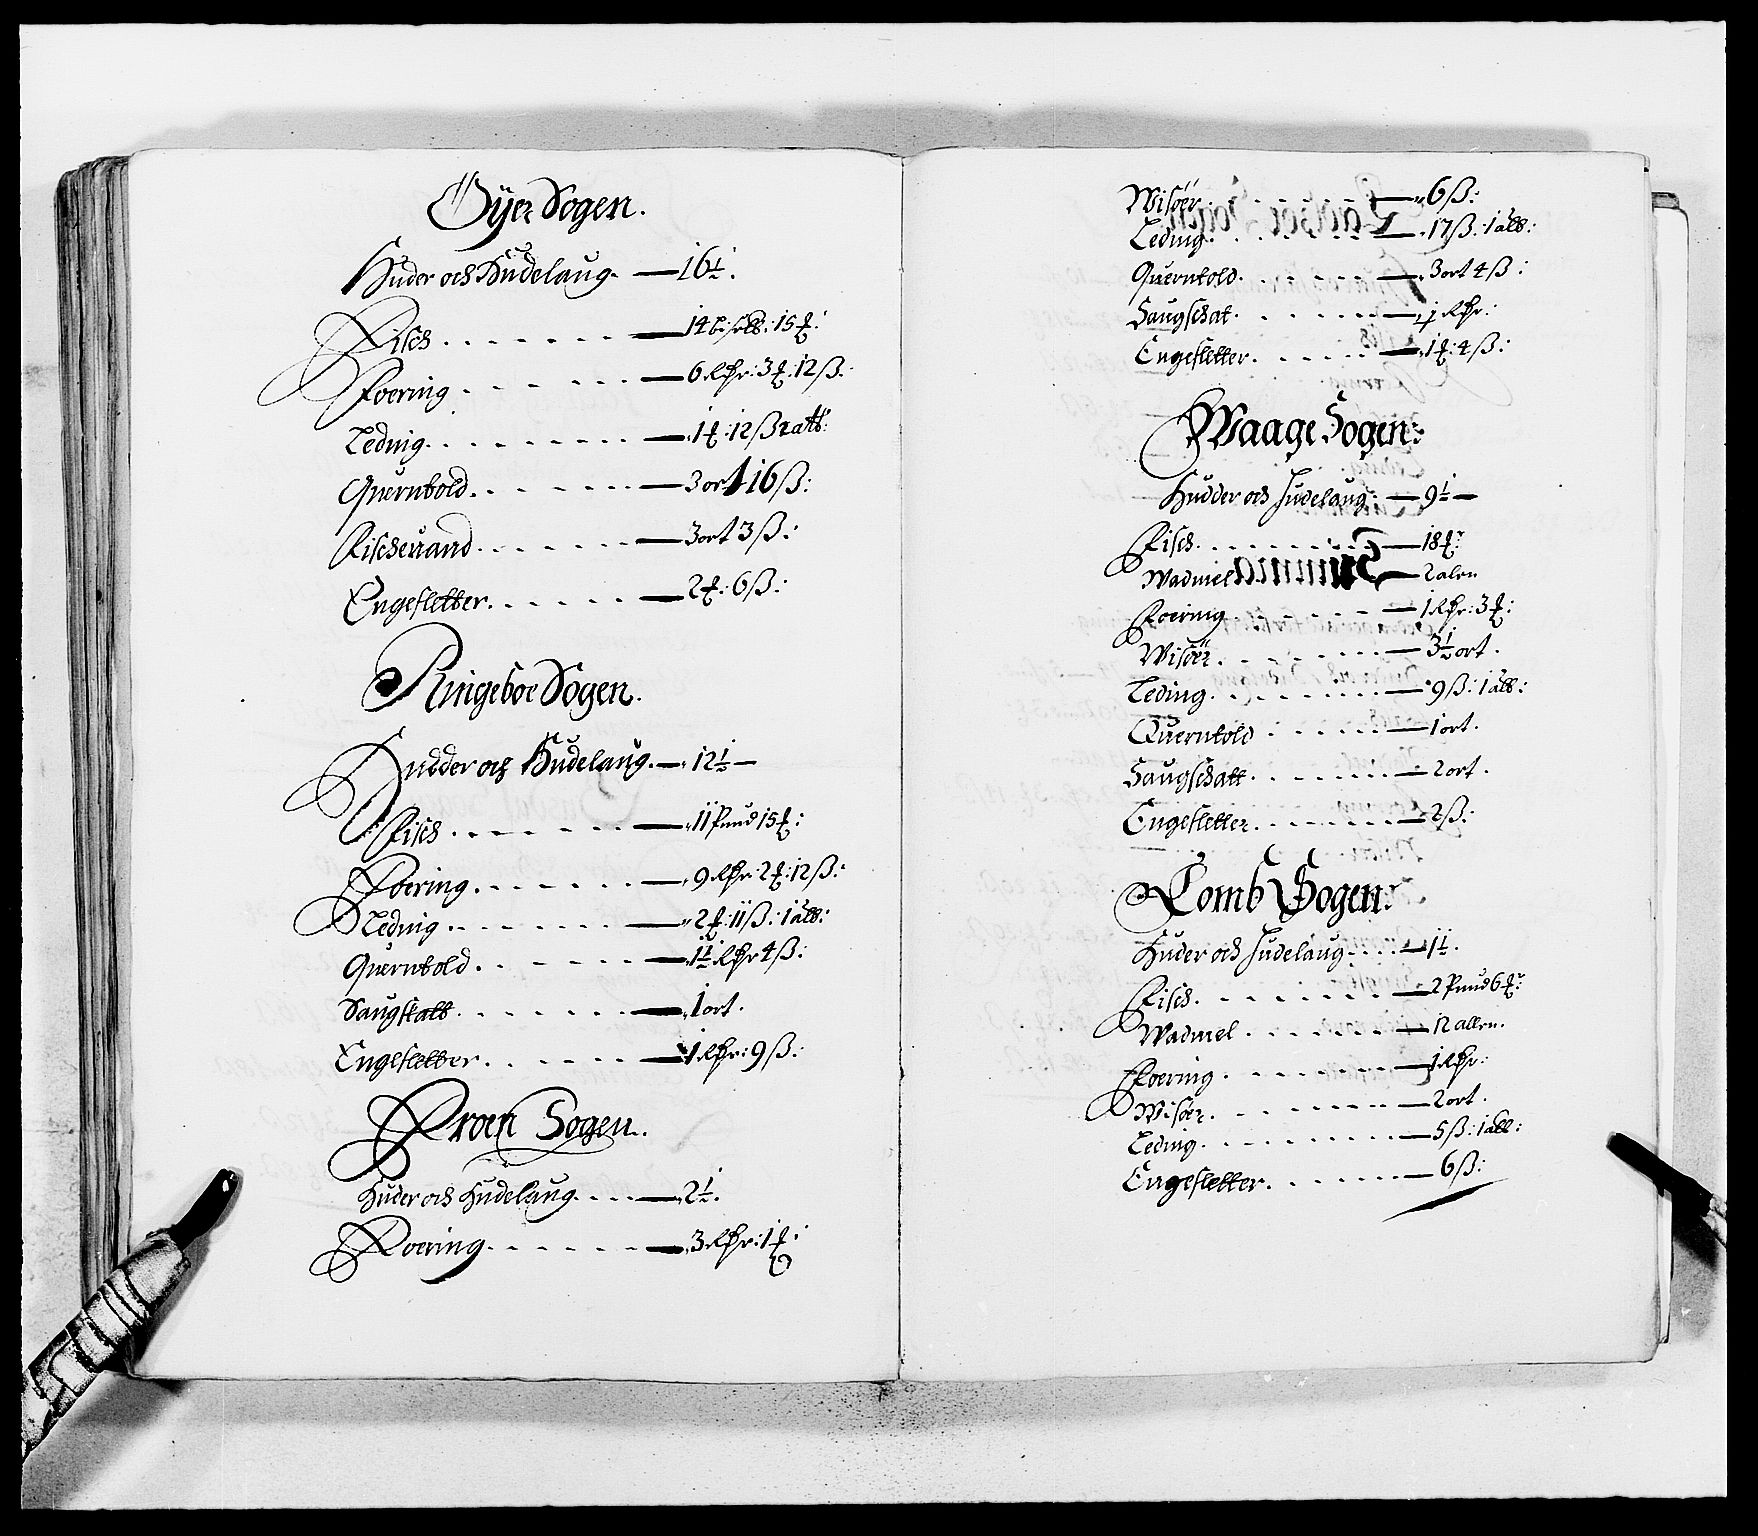 Öÿer Sogen.
Huder och Hudelaug. — 16½.
Fisch — 14 b: solb: 15 ℔:
Foering — 6 Rdr: 3 ℔: 12 ß:
Leding — 1 ℔: 12 ß 2 alb:
Quernbold — 3 ort 16 ß:
Fischeuand — 3 ort 3 ß:
Engesletter — 2 ℔: 6 ß:
Ringeboe Sogen.
Hudder och Hudelaug. — 12½ —
Fisch — 11 Pund 15 ℔:
Foering — 9 Rdr: 2 ℔: 12 ß:
Leding — 2 ℔: 11 ß: 1 alb:
Quernbold — 1½ Rdr 4 ß:
Saugskatt — 1 ort.
Engesletter — 1 Rdr: 9 ß:
Froen Sogen.
Huder och Hudelaug — 2½.
Foering — 3 Rdr: 1 ℔:
Wisöer — 6 ß:
Leding — 17 ß: 1 alb:
Quernbold — 3 ort 4 ß:
Saugschat — 1 Rdr:
Engesletter — 1 ℔: 4 ß:
Waage Sogen:
Hudder och Hudelaug — 9½ —
Fisch — 18 ℔:
Wadmel — 2 alen
Foering — 1 Rdr: 3 ℔:
Wisöer — 3½ ort.
Leding — 9 ß: 1 alb:
Quernbold — 1 ort.
Saugschatt — 2 ort.
Engesletter — 2 ß:
Lomb Sogen:
Huder och Hudelaug — 1½.
Fisch — 2 Pund 6 ℔:
Wadmel — 12 allen.
Foering — 1 Rdr:
Wisöer — 2 ort.
Leding — 5 ß: 1 alb:
Engesletter — 6 ß: